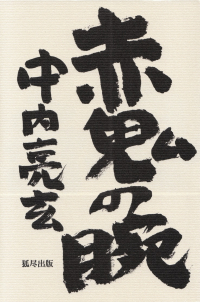 赤鬼の腕
中内亮玄
狐尽出版